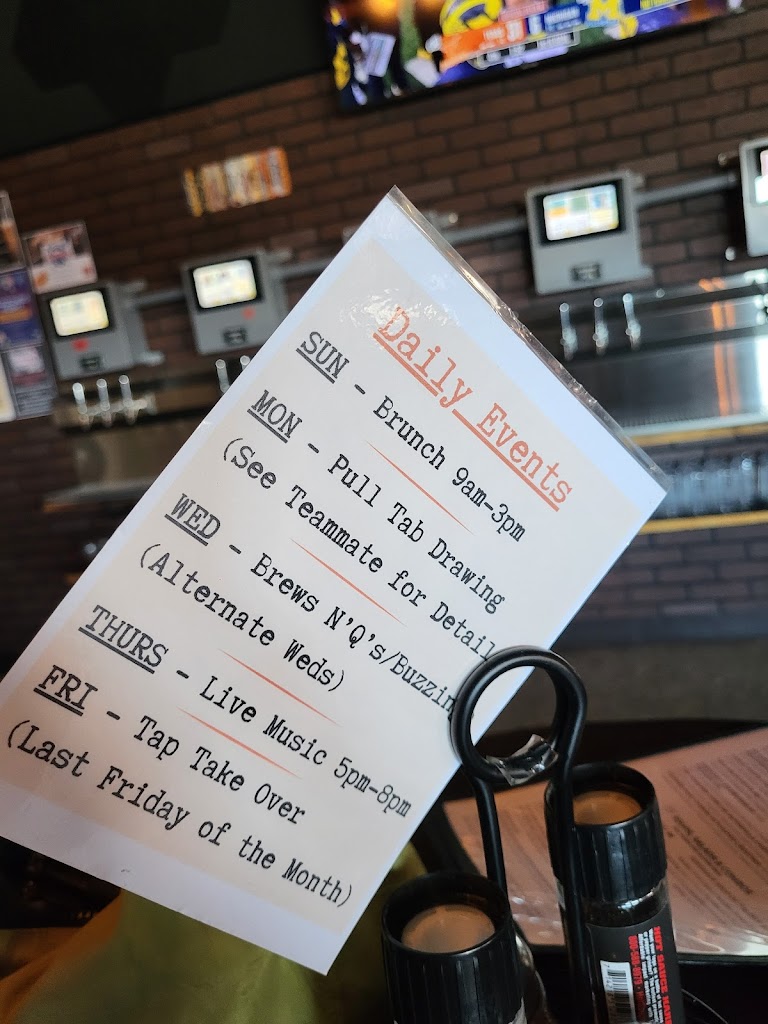 Daily Events
SUN - Brunch 9am-3pm
MON - Pull Tab Drawing
(See Teammate for Detail
WED - Brews N'Q's/Buzzin
(Alternate Weds)
THURS - Live Music 5pm-8pm
FRI - Tap Take Over
(Last Friday of the Month)
HOT SAUCE